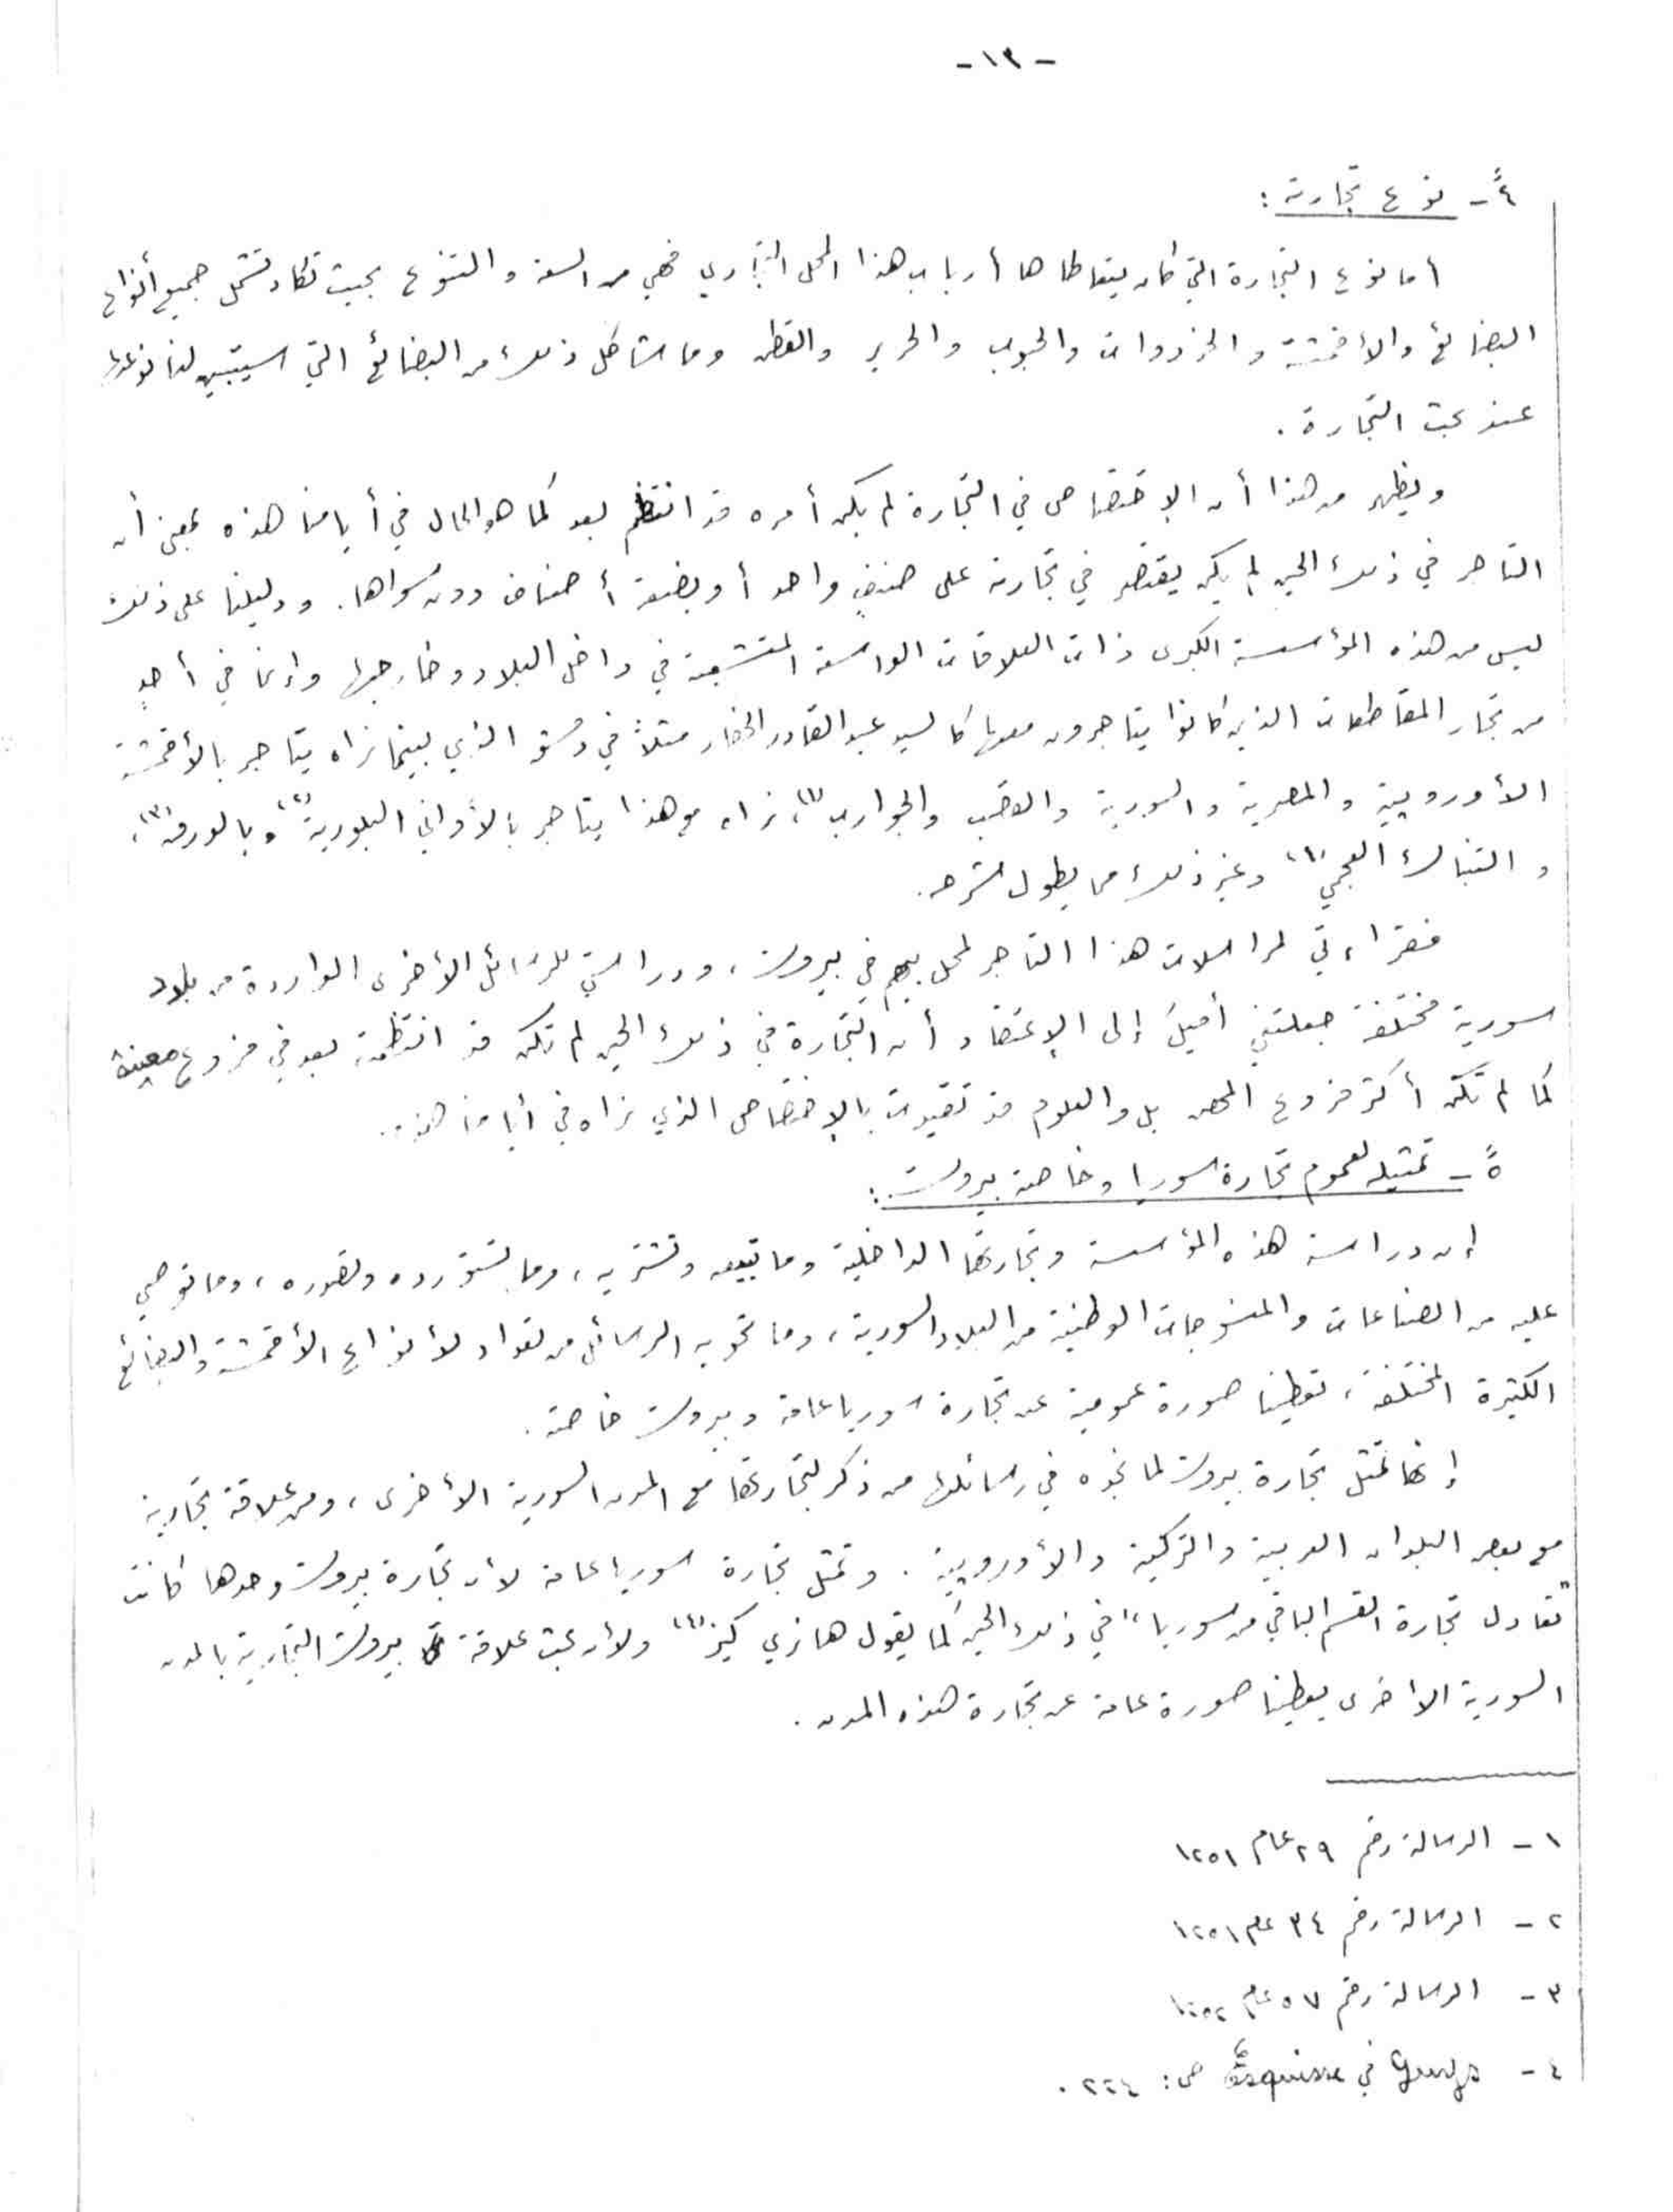 - ١٣ -
٤ً - نوع تجارته :
أما نوع التجارة التي كان يتعاطاها أرباب هذا المحل التجاري فهي من السعة والتنوع بحيث تكاد تشمل جميع أنواع
البضائع والأقمشة والخردوات والحبوب والحرير والقطن وما شاكل ذلك من البضائع التي سيتبين لنا نوعها
عند بحث التجارة .
ويظهر من هذا أن الإختصاص في التجارة لم يكن أمره قد انتظم بعد كما هو الحال في أيامنا هذه بمعنى أن
التاجر في ذلك الحين لم يكن يقتصر في تجارته على صنفٍ واحد أو بضعة أصناف دون سواها . ودليلنا على ذلك
ليس من هذه المؤسسة الكبرى ذات العلاقات الواسعة المتشعبة في داخل البلاد وخارجها وإنما في أحدٍ
من تجار المقاطعات الذين كانوا يتاجرون معها كالسيد عبد القادر الخضار مثلاً في دمشق الذي بينما نراه يتاجر بالأقمشة
الأوروبية والمصرية والسورية والقصب والجوارب (١)، نراه مع هذا يتاجر بالأواني البلورية (٢) وبالورق (٣)،
والتنباك العجمي (١) وغير ذلك مما يطول شرحه .
فقراءتي لمراسلات هذا التاجر لمحل بيهم في بيروت ، ودراستي للرسائل الأخرى الواردة من بلاد
سورية مختلفة جعلتني أميلَ إلى الإعتقاد أن التجارة في ذلك الحين لم تكن قد انتظمت بعد في فروع معينة
كما لم تكن أكثر فروع المهن بل والعلوم قد تقيدت بالإختصاص الذي نراه في أيامنا هذه .
٥ً - تمثيله لعموم تجارة سوريا وخاصة بيروت :
إن دراسة هذه المؤسسة وتجارتها الداخلية وما تبيعه وتشتريه ، وما تستورده وتصدره ، وما توصي
عليه من الصناعات والمنسوجات الوطنية من البلاد السورية ، وما تحويه الرسائل من تعداد لأنواع الأقمشة والبضائع
الكثيرة المختلفة ، تعطينا صورة عمومية عن تجارة سوريا عامة وبيروت خاصة .
إنها تمثل تجارة بيروت لما نجده في رسائلها من ذكر لتجارتها مع المدن السورية الأخرى ، ومن علاقة تجارية
مع بعض البلدان العربية والتركية والأوروبية . وتمثل تجارة سوريا عامة لأن تجارة بيروت وحدها كانت
"تعادل تجارة القسم الباقي من سوريا" في ذلك الحين كما يقول هانري كيز (٤) ولأن بحث علاقة بيروت التجارية بالمدن
السورية الأخرى يعطينا صورة عامة عن تجارة هذه المدن .
١ - الرسالة رقم ٢٩ عام ١٢٥١
٢ - الرسالة رقم ٣٤ عام ١٢٥١
٣ - الرسالة رقم ٥٧ عام ١٢٥٢
٤ - Guys في Esquisse ص : ٢٢٤ .